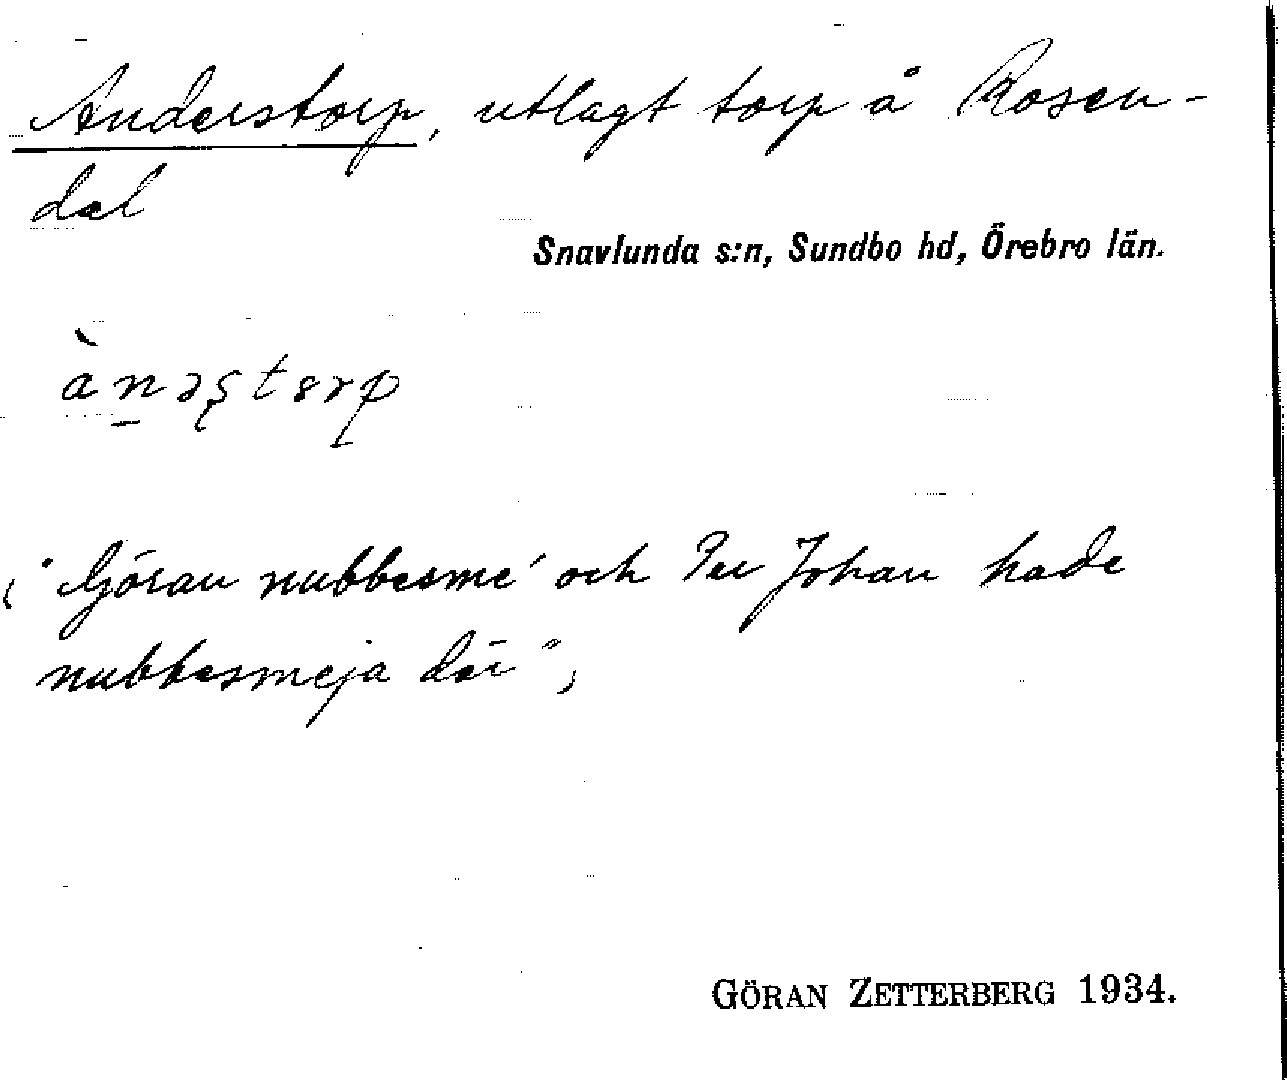 Anderstorp, utlagt torp å Rosen-
dal
Snavlunda s:n, Sundbo hd, Örebro län.
ànəştɞrp
"Göran nubbesme' och Per Johan hade
nubbesmeja där",
GÖRAN ZETTERBERG 1934.